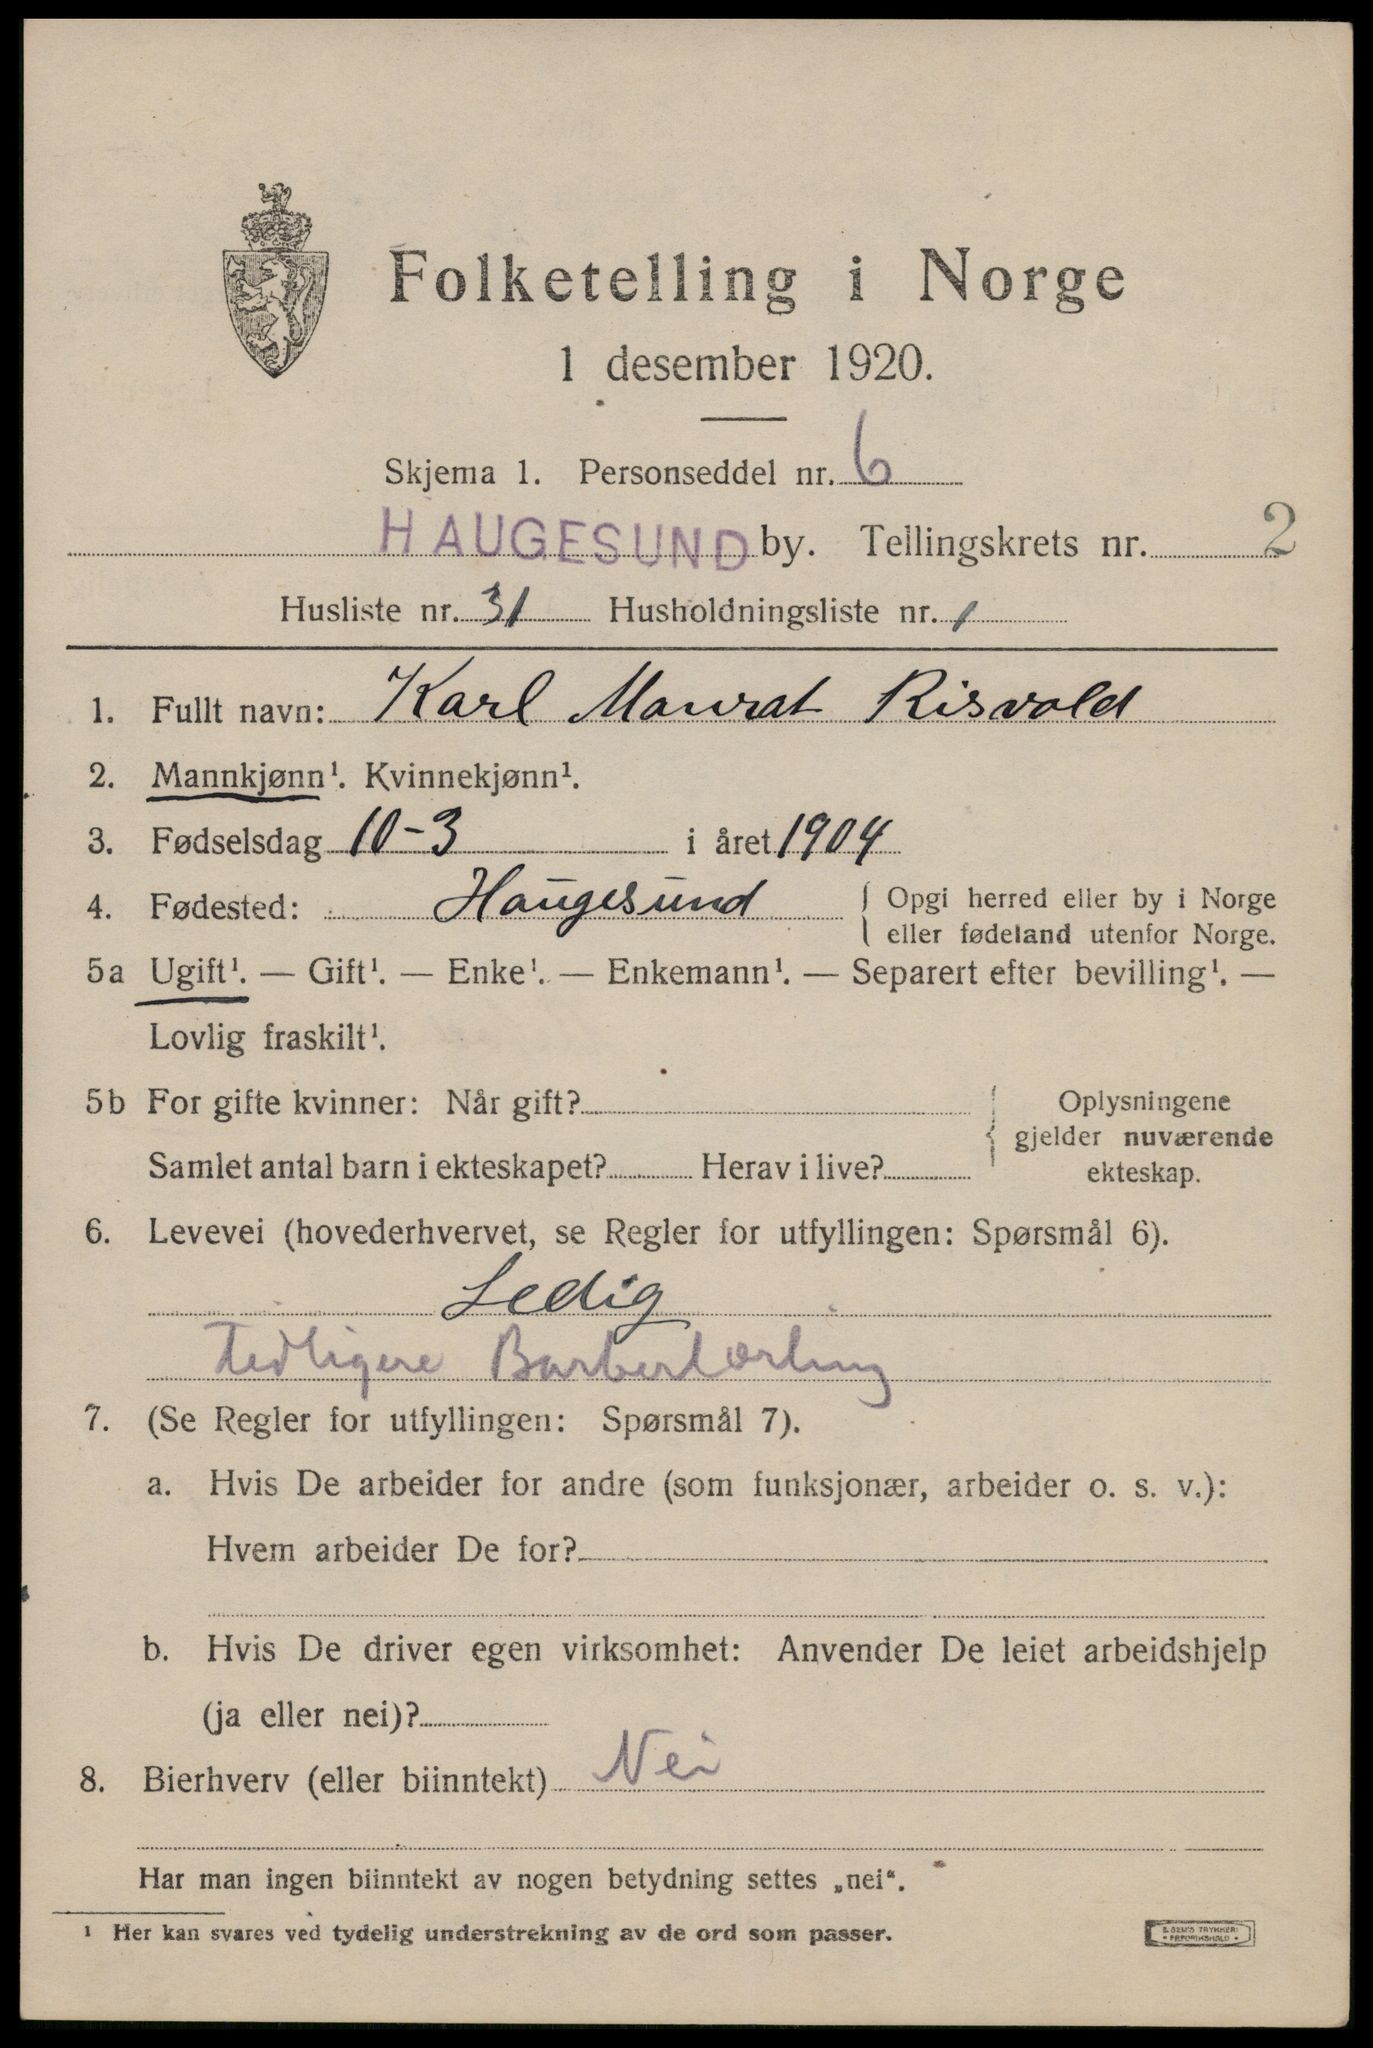 Folketelling i Norge
1 desember 1920.
Skjema 1. Personseddel nr. 6
HAUGESUND by. Tellingskrets nr. 2
Husliste nr. 31 Husholdningsliste nr. 1
1. Fullt navn: Karl Maurat Risvold
2. Mannkjønn¹. Kvinnekjønn¹.
3. Fødselsdag 10-3 i året 1904
4. Fødested: Haugesund { Opgi herred eller by i Norge
eller fødeland utenfor Norge.
5a Ugift¹. — Gift¹. — Enke¹. — Enkemann¹. — Separert efter bevilling¹. —
Lovlig fraskilt¹.
5b For gifte kvinner: Når gift?
Samlet antal barn i ekteskapet? Herav i live?
{ Oplysningene
gjelder nuværende
ekteskap.
6. Levevei (hovederhvervet, se Regler for utfyllingen: Spørsmål 6).
Ledig
Tidligere Barberlærling
7. (Se Regler for utfyllingen: Spørsmål 7).
a. Hvis De arbeider for andre (som funksjonær, arbeider o. s. v.):
Hvem arbeider De for?
b. Hvis De driver egen virksomhet: Anvender De leiet arbeidshjelp
(ja eller nei)?
8. Bierhverv (eller biinntekt) Nei
Har man ingen biinntekt av nogen betydning settes „nei“.
¹ Her kan svares ved tydelig understrekning av de ord som passer.
E. SEM'S TRYKKERI
• FREDRIKSHALD •